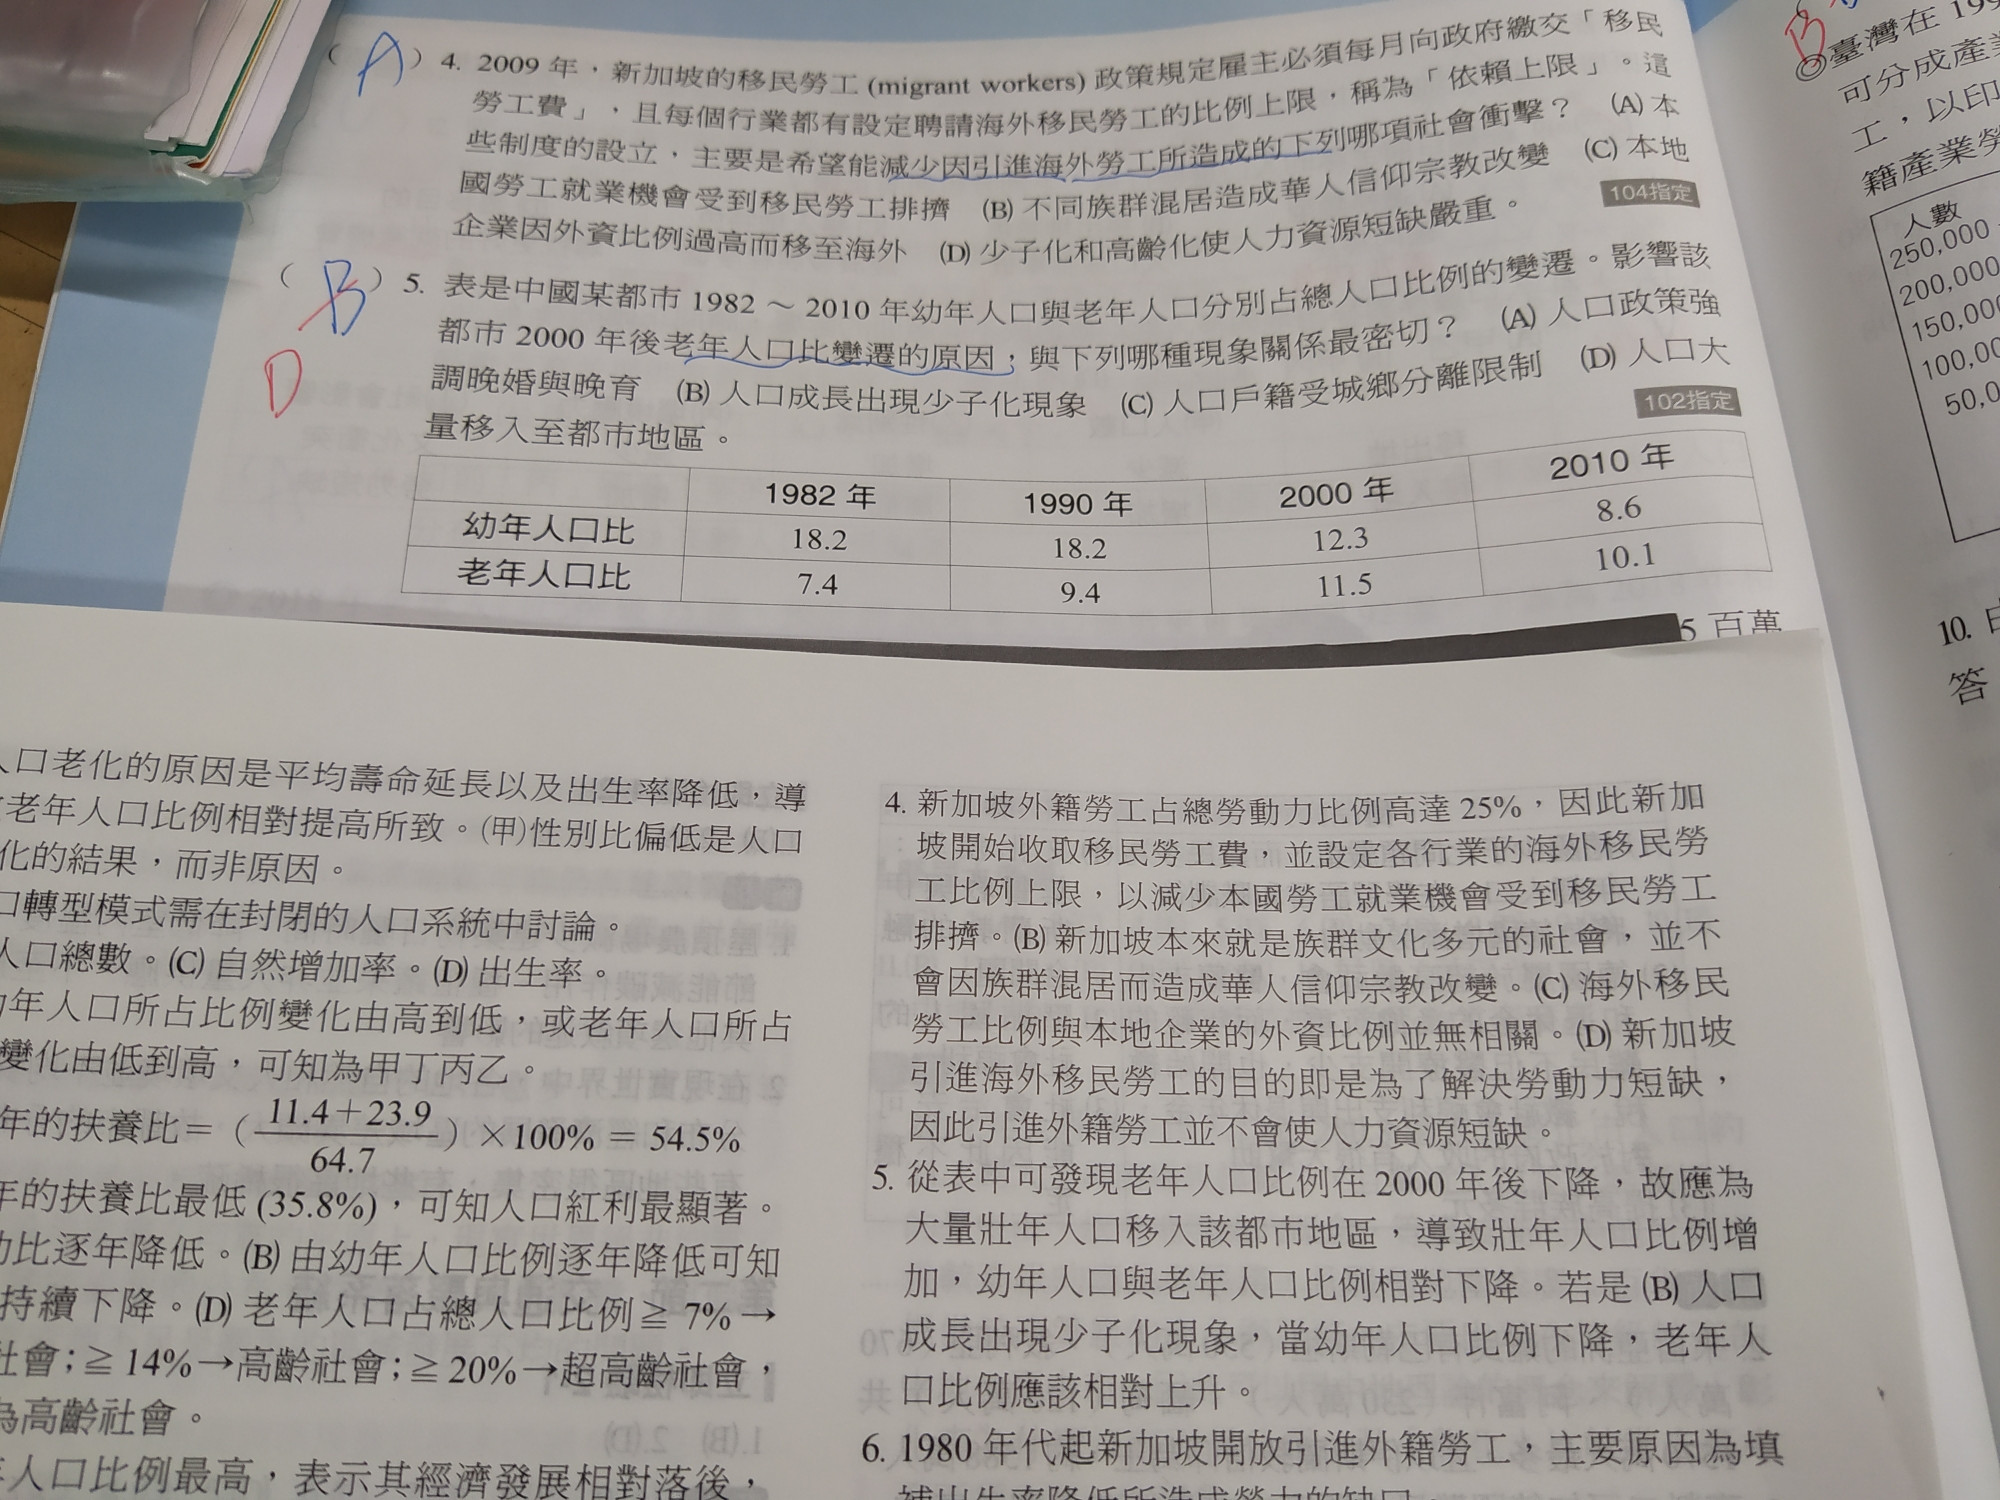 ( A ) 4. 2009 年，新加坡的移民勞工 (migrant workers) 政策規定雇主必須每月向政府繳交「移民
勞工費」，且每個行業都有設定聘請海外移民勞工的比例上限，稱為「依賴上限」。這
些制度的設立，主要是希望能減少因引進海外勞工所造成的下列哪項社會衝擊？ (A) 本
國勞工就業機會受到移民勞工排擠 (B) 不同族群混居造成華人信仰宗教改變 (C) 本地
企業因外資比例過高而移至海外 (D) 少子化和高齡化使人力資源短缺嚴重。
104指定
( B ) 5. 表是中國某都市 1982 ~ 2010 年幼年人口與老年人口分別占總人口比例的變遷。影響該
D
都市 2000 年後老年人口比變遷的原因，與下列哪種現象關係最密切？ (A) 人口政策強
調晚婚與晚育 (B) 人口成長出現少子化現象 (C) 人口戶籍受城鄉分離限制 (D) 人口大
量移入至都市地區。
102指定
1982 年 1990 年 2000 年 2010 年
幼年人口比 18.2 18.2 12.3 8.6
老年人口比 7.4 9.4 11.5 10.1
5 百萬
人口老化的原因是平均壽命延長以及出生率降低，導
老年人口比例相對提高所致。(甲)性別比偏低是人口
化的結果，而非原因。
口轉型模式需在封閉的人口系統中討論。
人口總數。(C) 自然增加率。(D) 出生率。
年人口所占比例變化由高到低，或老年人口所占
變化由低到高，可知為甲丁丙乙。
年的扶養比＝（11.4＋23.9
64.7）×100%＝54.5%
年的扶養比最低 (35.8%)，可知人口紅利最顯著。
比逐年降低。(B) 由幼年人口比例逐年降低可知
持續下降。(D) 老年人口占總人口比例≧ 7%→
社會；≧ 14%→高齡社會；≧ 20%→超高齡社會，
為高齡社會。
人口比例最高，表示其經濟發展相對落後，
4. 新加坡外籍勞工占總勞動力比例高達 25%，因此新加
坡開始收取移民勞工費，並設定各行業的海外移民勞
工比例上限，以減少本國勞工就業機會受到移民勞工
排擠。(B) 新加坡本來就是族群文化多元的社會，並不
會因族群混居而造成華人信仰宗教改變。(C) 海外移民
勞工比例與本地企業的外資比例並無相關。(D) 新加坡
引進海外移民勞工的目的即是為了解決勞動力短缺，
因此引進外籍勞工並不會使人力資源短缺。
5. 從表中可發現老年人口比例在 2000 年後下降，故應為
大量壯年人口移入該都市地區，導致壯年人口比例增
加，幼年人口與老年人口比例相對下降。若是 (B) 人口
成長出現少子化現象，當幼年人口比例下降，老年人
口比例應該相對上升。
6. 1980 年代起新加坡開放引進外籍勞工，主要原因為填
補出生率降低所造成勞力的缺口。
B
◎臺灣在 199
可分成產業
工，以印
籍產業勞
人數
250,000
200,000
150,000
100,00
50,0
10.
答